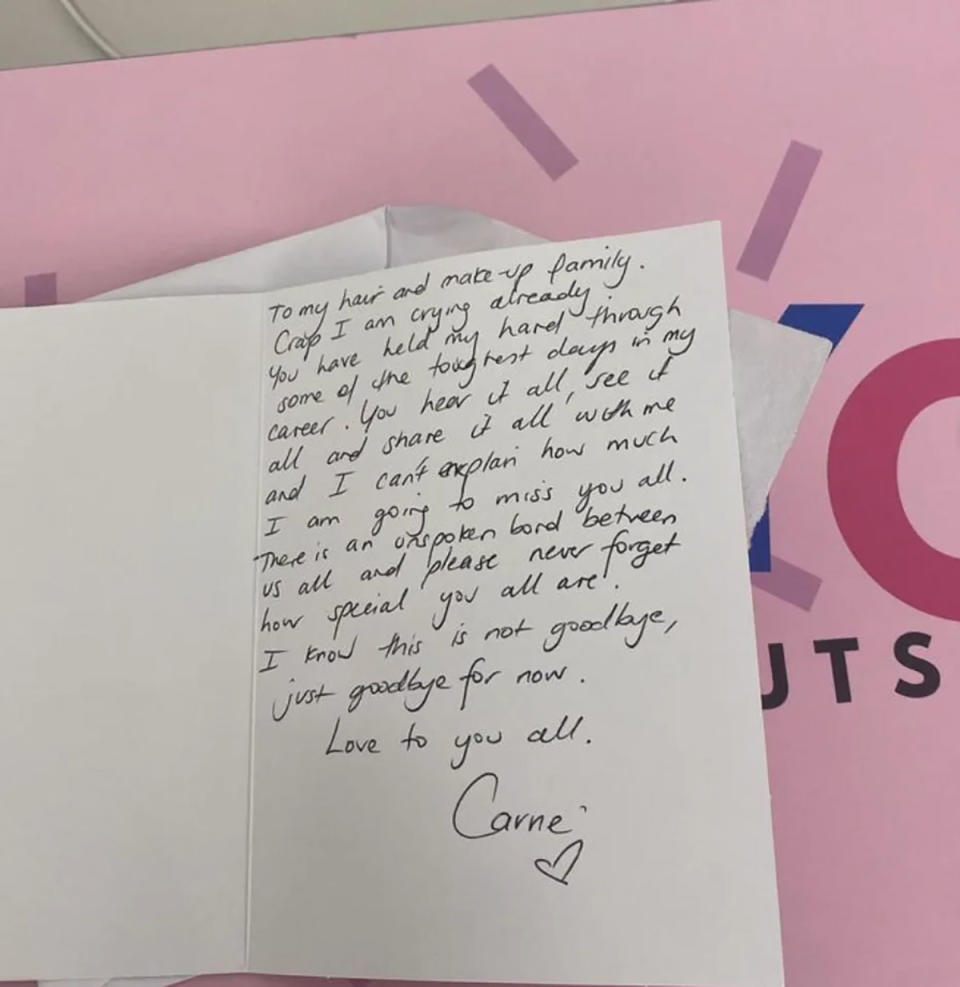 To my hair and make-up family.
Crap I am crying already.
You have held my hand through
some of the toughest days in my
career. You hear it all, see it
all and share it all with me
and I can't explain how much
I am going to miss you all.
There is an unspoken bond between
us all and please never forget
how special you all are!
I know this is not goodbye,
just goodbye for now.
Love to you all.
Carrie
UTS